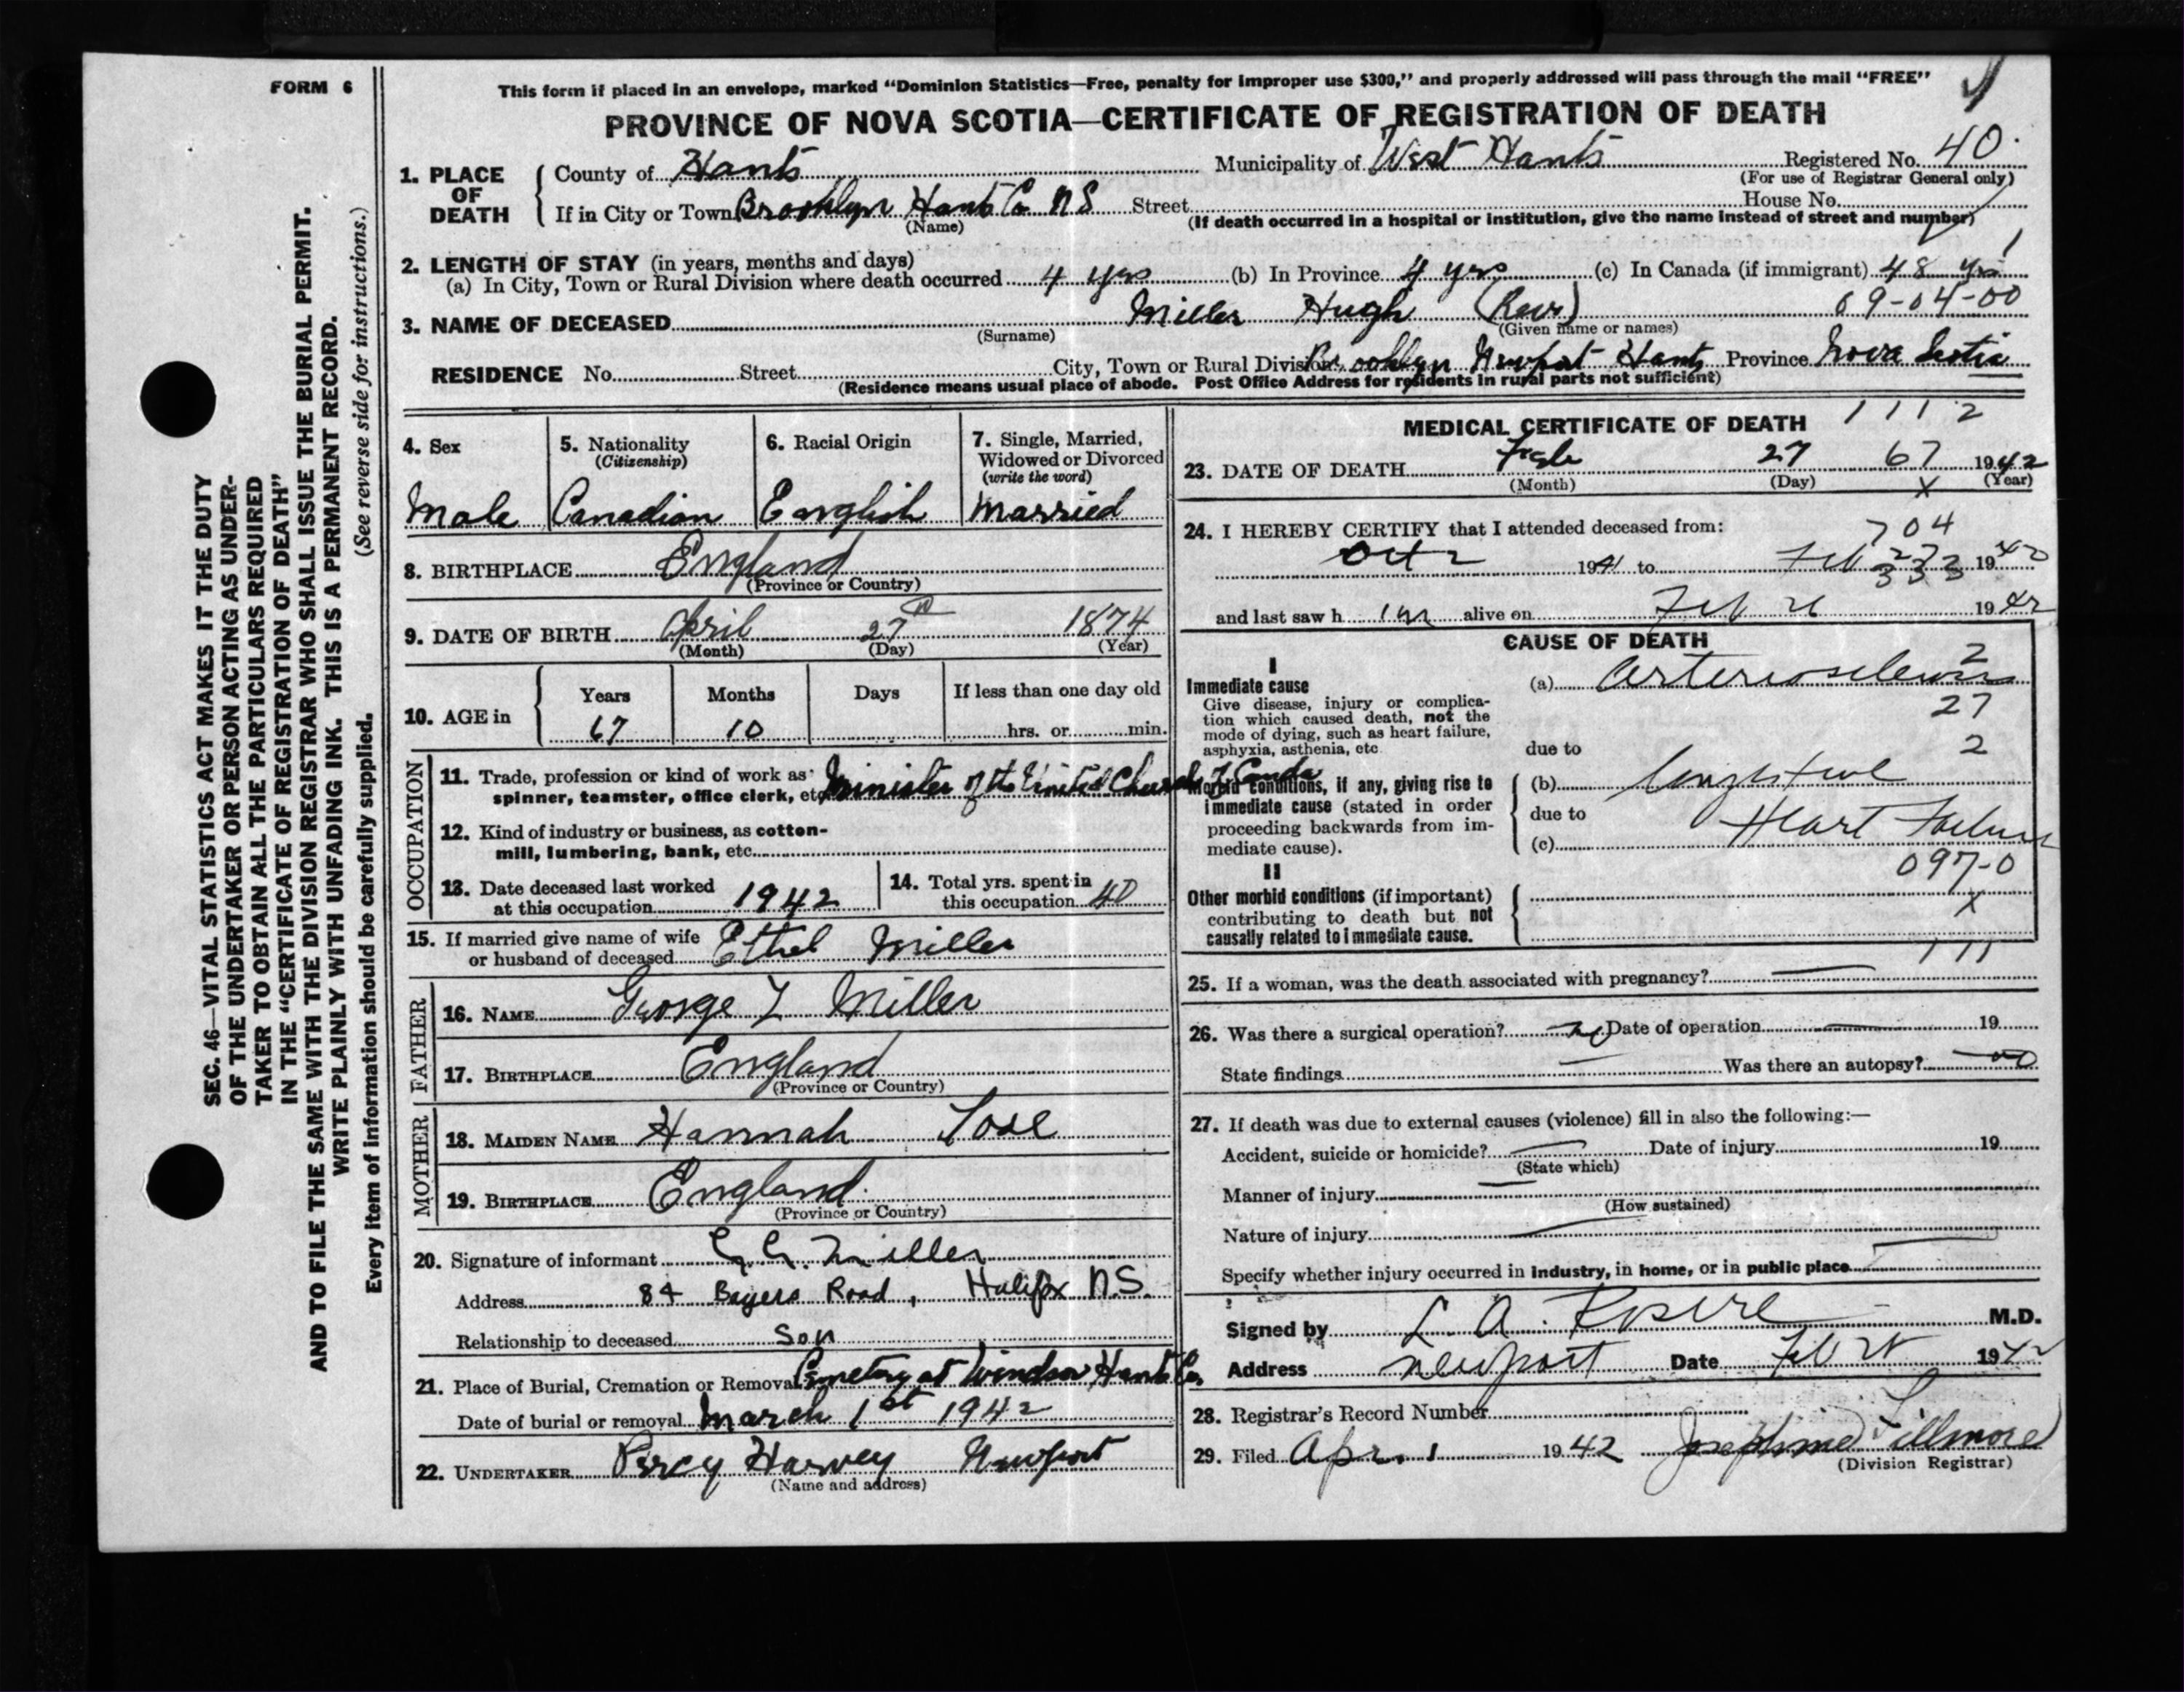 FORM 6
This form if placed in an envelope, marked "Dominion Statistics—Free, penalty for improper use $300," and properly addressed will pass through the mail "FREE"
PROVINCE OF NOVA SCOTIA—CERTIFICATE OF REGISTRATION OF DEATH
SEC. 46—VITAL STATISTICS ACT MAKES IT THE DUTY
OF THE UNDERTAKER OR PERSON ACTING AS UNDER-
TAKER TO OBTAIN ALL THE PARTICULARS REQUIRED
IN THE "CERTIFICATE OF REGISTRATION OF DEATH"
AND TO FILE THE SAME WITH THE DIVISION REGISTRAR WHO SHALL ISSUE THE BURIAL PERMIT.
WRITE PLAINLY WITH UNFADING INK. THIS IS A PERMANENT RECORD.
(See reverse side for instructions.)
Every item of information should be carefully supplied.
1. PLACE OF DEATH
County of Hants Municipality of West Hants Registered No. 40
(For use of Registrar General only)
If in City or Town Brooklyn Hants Co NS Street House No.
(Name) (If death occurred in a hospital or institution, give the name instead of street and number)
2. LENGTH OF STAY (in years, months and days)
(a) In City, Town or Rural Division where death occurred 4 yrs (b) In Province 4 yrs (c) In Canada (if immigrant) 48 yrs
3. NAME OF DECEASED Miller Hugh (Rev) 09-04-00
(Surname) (Given name or names)
RESIDENCE No. Street City, Town or Rural Division Brooklyn Newport Hants Province Nova Scotia
(Residence means usual place of abode. Post Office Address for residents in rural parts not sufficient)
4. Sex
Male
5. Nationality
(Citizenship)
Canadian
6. Racial Origin
English
7. Single, Married,
Widowed or Divorced
(write the word)
Married
8. BIRTHPLACE England
(Province or Country)
9. DATE OF BIRTH April 27th 1874
(Month) (Day) (Year)
10. AGE in
Years Months Days If less than one day old
67 10 hrs. or min.
OCCUPATION
11. Trade, profession or kind of work as
spinner, teamster, office clerk, etc. Minister of the United Church of Canda
12. Kind of industry or business, as cotton-
mill, lumbering, bank, etc.
13. Date deceased last worked
at this occupation 1942
14. Total yrs. spent in
this occupation 40
15. If married give name of wife
or husband of deceased Ethel Miller
FATHER
16. NAME George Miller
17. BIRTHPLACE England
(Province or Country)
MOTHER
18. MAIDEN NAME Hannah
19. BIRTHPLACE England.
(Province or Country)
20. Signature of informant Miller
Address 84 Bayers Road, Halifax N.S.
Relationship to deceased Son
21. Place of Burial, Cremation or Removal Cemetery at Windsor Hants Co.
Date of burial or removal March 1st 1942
22. UNDERTAKER Percy Harvey Newport
(Name and address)
MEDICAL CERTIFICATE OF DEATH 1112
23. DATE OF DEATH Feb 27 67 1942
(Month) (Day) X (Year)
24. I HEREBY CERTIFY that I attended deceased from: 704
Oct 2 1941 to Feb 27 333 19
and last saw h im alive on Feb 26 1942
CAUSE OF DEATH
I
Immediate cause
Give disease, injury or complica-
tion which caused death, not the
mode of dying, such as heart failure,
asphyxia, asthenia, etc.
2
(a) Arteriosclerosis
27
due to 2
Morbid conditions, if any, giving rise to
immediate cause (stated in order
proceeding backwards from im-
mediate cause).
(b) Congestive
due to
(c) Heart Failure
097-0
II
Other morbid conditions (if important)
contributing to death but not
causally related to immediate cause.
X
111
25. If a woman, was the death associated with pregnancy? —
26. Was there a surgical operation? No Date of operation — 19
State findings — Was there an autopsy? no
27. If death was due to external causes (violence) fill in also the following:—
Accident, suicide or homicide? — Date of injury 19
(State which)
Manner of injury —
(How sustained)
Nature of injury —
Specify whether injury occurred in industry, in home, or in public place —
Signed by L. A. M.D.
Address Newport Date Feb 28 1942
28. Registrar's Record Number
29. Filed Apr. 1 1942 Josephine Fillmore
(Division Registrar)